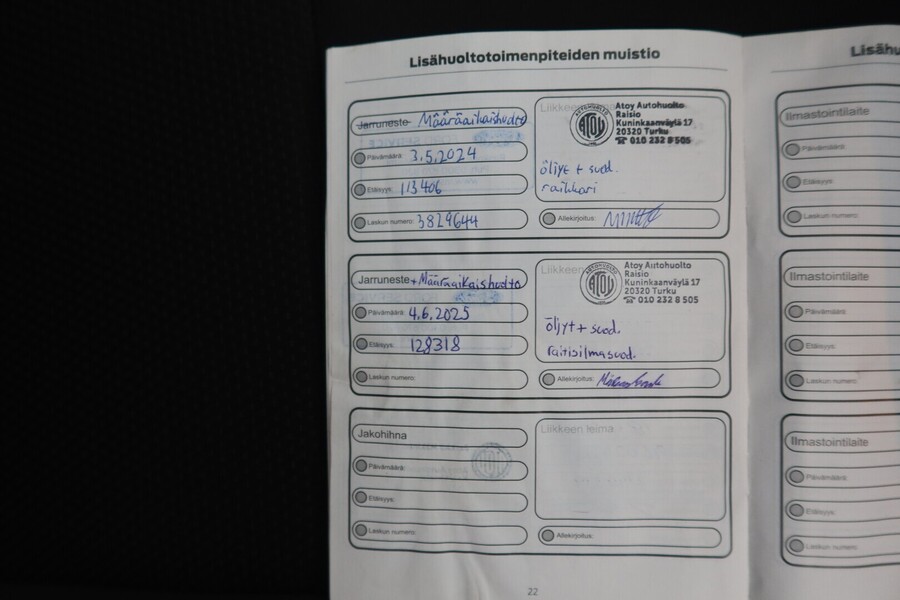 Lisähuoltotoimenpiteiden muistio
Jarruneste Määräaikaishuolto
Päivämäärä: 3.5.2024
Etäisyys: 113406
Laskun numero: 3829644
Liikkeen
ATOY
Atoy Autohuolto
Raisio
Kuninkaanväylä 17
20320 Turku
☎ 010 232 8 505
öljyt + suod.
raikkari
Allekirjoitus:
Jarruneste + Määräaikaishuolto
Päivämäärä: 4.6.2025
Etäisyys: 128318
Laskun numero:
Liikkeen
ATOY
Atoy Autohuolto
Raisio
Kuninkaanväylä 17
20320 Turku
☎ 010 232 8 505
öljyt + suod.
raitisilmasuod.
Allekirjoitus:
Jakohihna
Päivämäärä:
Etäisyys:
Laskun numero:
Liikkeen leima
Allekirjoitus:
22
Lisähu
Ilmastointilaite
Päivämäärä:
Etäisyys:
Laskun numero:
Ilmastointilaite
Päivämäärä:
Etäisyys:
Laskun numero:
Ilmastointilaite
Päivämäärä:
Etäisyys:
Laskun numero: